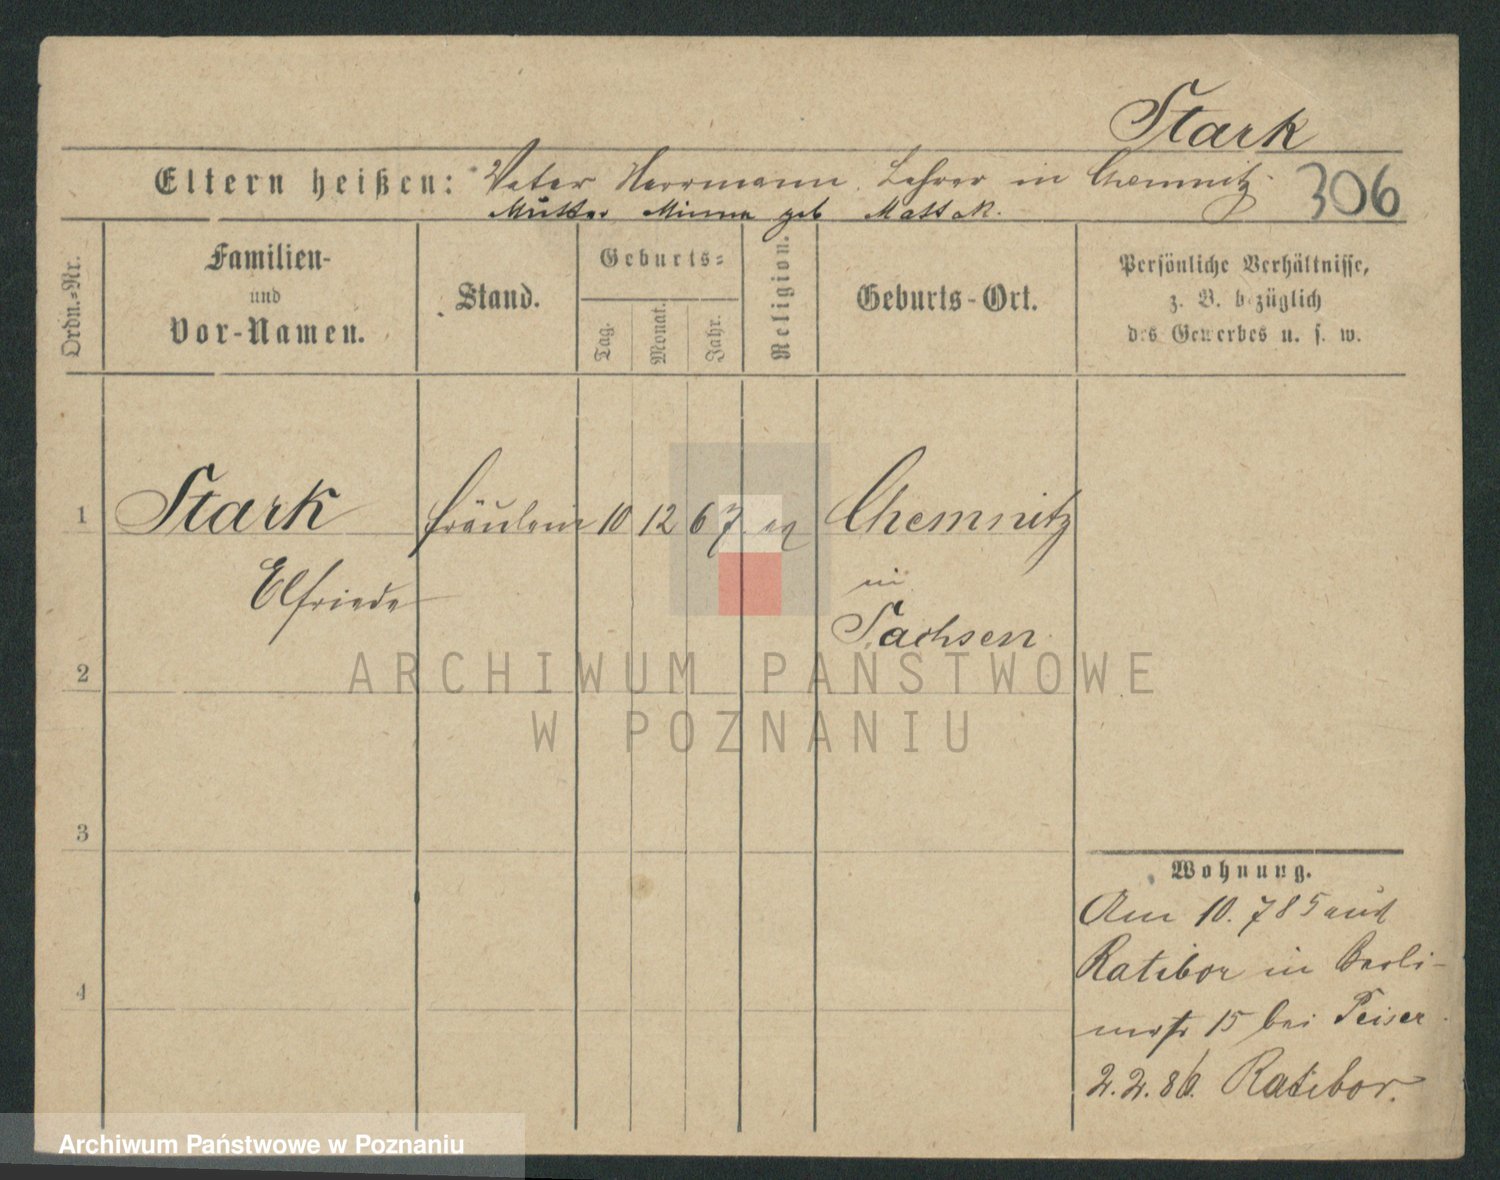 Stark
Eltern heißen: Vater Herrmann, Lehrer in Chemnitz 306
Mutter Minna geb
Ordn.=Nr.
Familien-
und
Vor-Namen.
Stand.
Geburts=
Tag.
Monat.
Jahr.
Religion.
Geburts-Ort.
Persönliche Verhältnisse,
z. B. bezüglich
des Gewerbes u. s. w.
1 Stark Fräulein 10 12 67 ev Chemnitz
Elfriede
in
Sachsen
2
ARCHIWUM PAŃSTWOWE
W POZNANIU
3
4
Wohnung.
Am 10. 7 85 aus
Ratibor in Berli-
nerstr 15 bei Peiser
2.2.86. Ratibor.
Archiwum Państwowe w Poznaniu